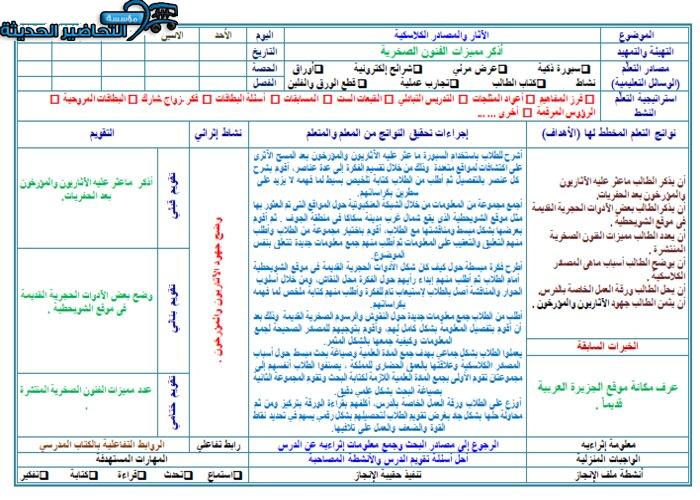 مؤسسة
التحاضير الحديثة
الموضوع
الآثار والمصادر الكلاسكية
اليوم
الأحد
الاثنين
التهيئة والتمهيد
أذكر مميزات الفنون الصخرية
التاريخ
مصادر التعلم
(الوسائل التعليمية)
سبورة ذكية
عرض مرئي
شرائح إلكترونية
أوراق
نشاط
كتاب الطالب
تجارب عملية
قطع الورق والفلين
الحصة
الفصل
استراتيجية التعلم
النشط
فرز المفاهيم
أعواد المثلجات
التدريس التبادلي
القبعات الست
المسابقات
أسئلة البطاقات
فكر .زواج شارك
البطاقات المروحية
الرؤوس المرقمة
أخرى ... ...
نواتج التعلم المخطط لها (الأهداف)
إجراءات تحقيق النواتج من المعلم والمتعلم
نشاط إثرائي
التقويم
أن يذكر الطالب ماعثر عليه الآثاريون
والمؤرخون بعد الحفريات.
أن يذكر الطالب بعض الأدوات الحجرية القديمة
في موقع الشويحطية .
أن يعدد الطالب مميزات الفنون الصخرية
المنتشرة .
أن يوضح الطالب أسباب ماهي المصادر
الكلاسكية .
أن يحل الطالب ورقة العمل الخاصة بالدرس.
أن يثمن الطالب جهود الآثاريون والمؤرخون .
الخبرات السابقة
عرف مكانة موقع الجزيرة العربية
قديماً .
أشرح للطلاب باستخدام السبورة ما عثر عليه الآثاريون والمؤرخون بعد المسح الأثري
على اكتشافات لمواقع متعددة وذلك من خلال تقسيم الفكرة إلى عدة عناصر، أقوم بشرح
كل عنصر بالتفصيل ثم أطلب من الطلاب كتابة تلخيص بسيط لما فهمه لا يزيد على
سطرين بكراساتهم.
أجمع مجموعة من المعلومات من خلال الشبكة العنكبوتية حول المواقع التي تم العثور بها
مثل موقع الشويحطية الذي يقع شمال غرب مدينة سكاكا في منطقة الجوف . ثم أقوم
بعرضها بشكل مبسط ومناقشتها مع الطلاب، أقوم باختيار مجموعة من الطلاب وأطلب
منهم التعليق والتعقيب على المعلومات ثم أطلب منهم جمع معلومات جديدة تتعلق بنفس
الموضوع.
أطرح فكرة مبسطة حول كيف كان شكل الأدوات الحجرية القديمة في موقع الشويحطية
أمام الطلاب ثم أطلب منهم إبداء رأيهم حول الفكرة محل النقاش، ومن خلال أسلوب
الحوار والمناقشة أصل بالطلاب لإستيعاب تام للفكرة وأطلب منهم كتابة ملخص لما فهمه
بكراساتهم.
أطلب من الطلاب جمع معلومات جديدة حول النقوش والرسوم الصخرية القديمة وذلك بعد
أن أقوم بتفصيل المعلومة بشكل كامل لهم، وأقوم بتوجيههم للمصادر الصحيحة لجمع
المعلومات وكيفية جمعها بالشكل المثمر.
يعملوا الطلاب بشكل جماعي بهدف جمع المادة العلمية وصياغة بحث مبسط حول أسباب
المصادر الكلاسكية وعلاقتها بالعمق الحضاري للمملكة ، يصنفوا الطلاب أنفسهم إلى
مجموعتان الأولى بجمع المادة العلمية اللازمة لكتابة البحث وتقوم المجموعة الثانية
بصياغة البحث بشكل علمي دقيق.
أوزع على الطلاب ورقة العمل الخاصة بالدرس، أكلفهم بقراءة الورقة بتركيز ومن ثم
محاولة حلها بشكل جاد بغرض تقويم الطلاب لتحصيلهم بشكل رقمي يسهم في تحديد نقاط
القوة والضعف والعمل على تلافيها.
وضح جهود الآثاريون والمؤرخون .
تقويم قبلي
أذكر ماعثر عليه الآثاريون والمؤرخون
بعد الحفريات.
تقويم بنائي
وضح بعض الأدوات الحجرية القديمة
في موقع الشويحطية .
تقويم ختامي
عدد مميزات الفنون الصخرية المنتشرة
.
معلومة إثرائيه
الرجوع إلى مصادر البحث وجمع معلومات إثرائيه عن الدرس
رابط تفاعلي
الروابط التفاعلية بالكتاب المدرسي
الواجبات المنزلية
أحل أسئلة تقويم الدرس والأنشطة المصاحبة
المهارات المستهدفة
أنشطة ملف الإنجاز
تنفيذ حقيبة الإنجاز
استماع
تحدث
قراءة
كتابة
تفكير